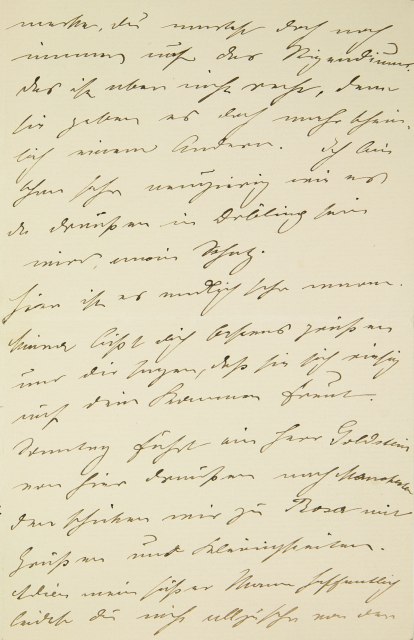 merke, du wartest doch noch
immer auf das Stipendium.
Das ist aber nicht recht, denn
sie geben es doch wahrschein-
lich einem Andern. Ich bin
schon sehr neugierig wie es
da draußen in Döbling sein
wird, mein Schatz.
Hier ist es endlich sehr warm.
Minna läßt dich bestens grüßen
und dir sagen, daß sie sich riesig
auf dein Kommen freut.
Sonntag fährt ein Herr Goldstein
von hier draußen nach Manchester
den schicken wir zu Rosa mit
Grüßen und Kleinigkeiten.
Adieu mein süßer Mann hoffentlich
leidest du nicht allzusehr von der